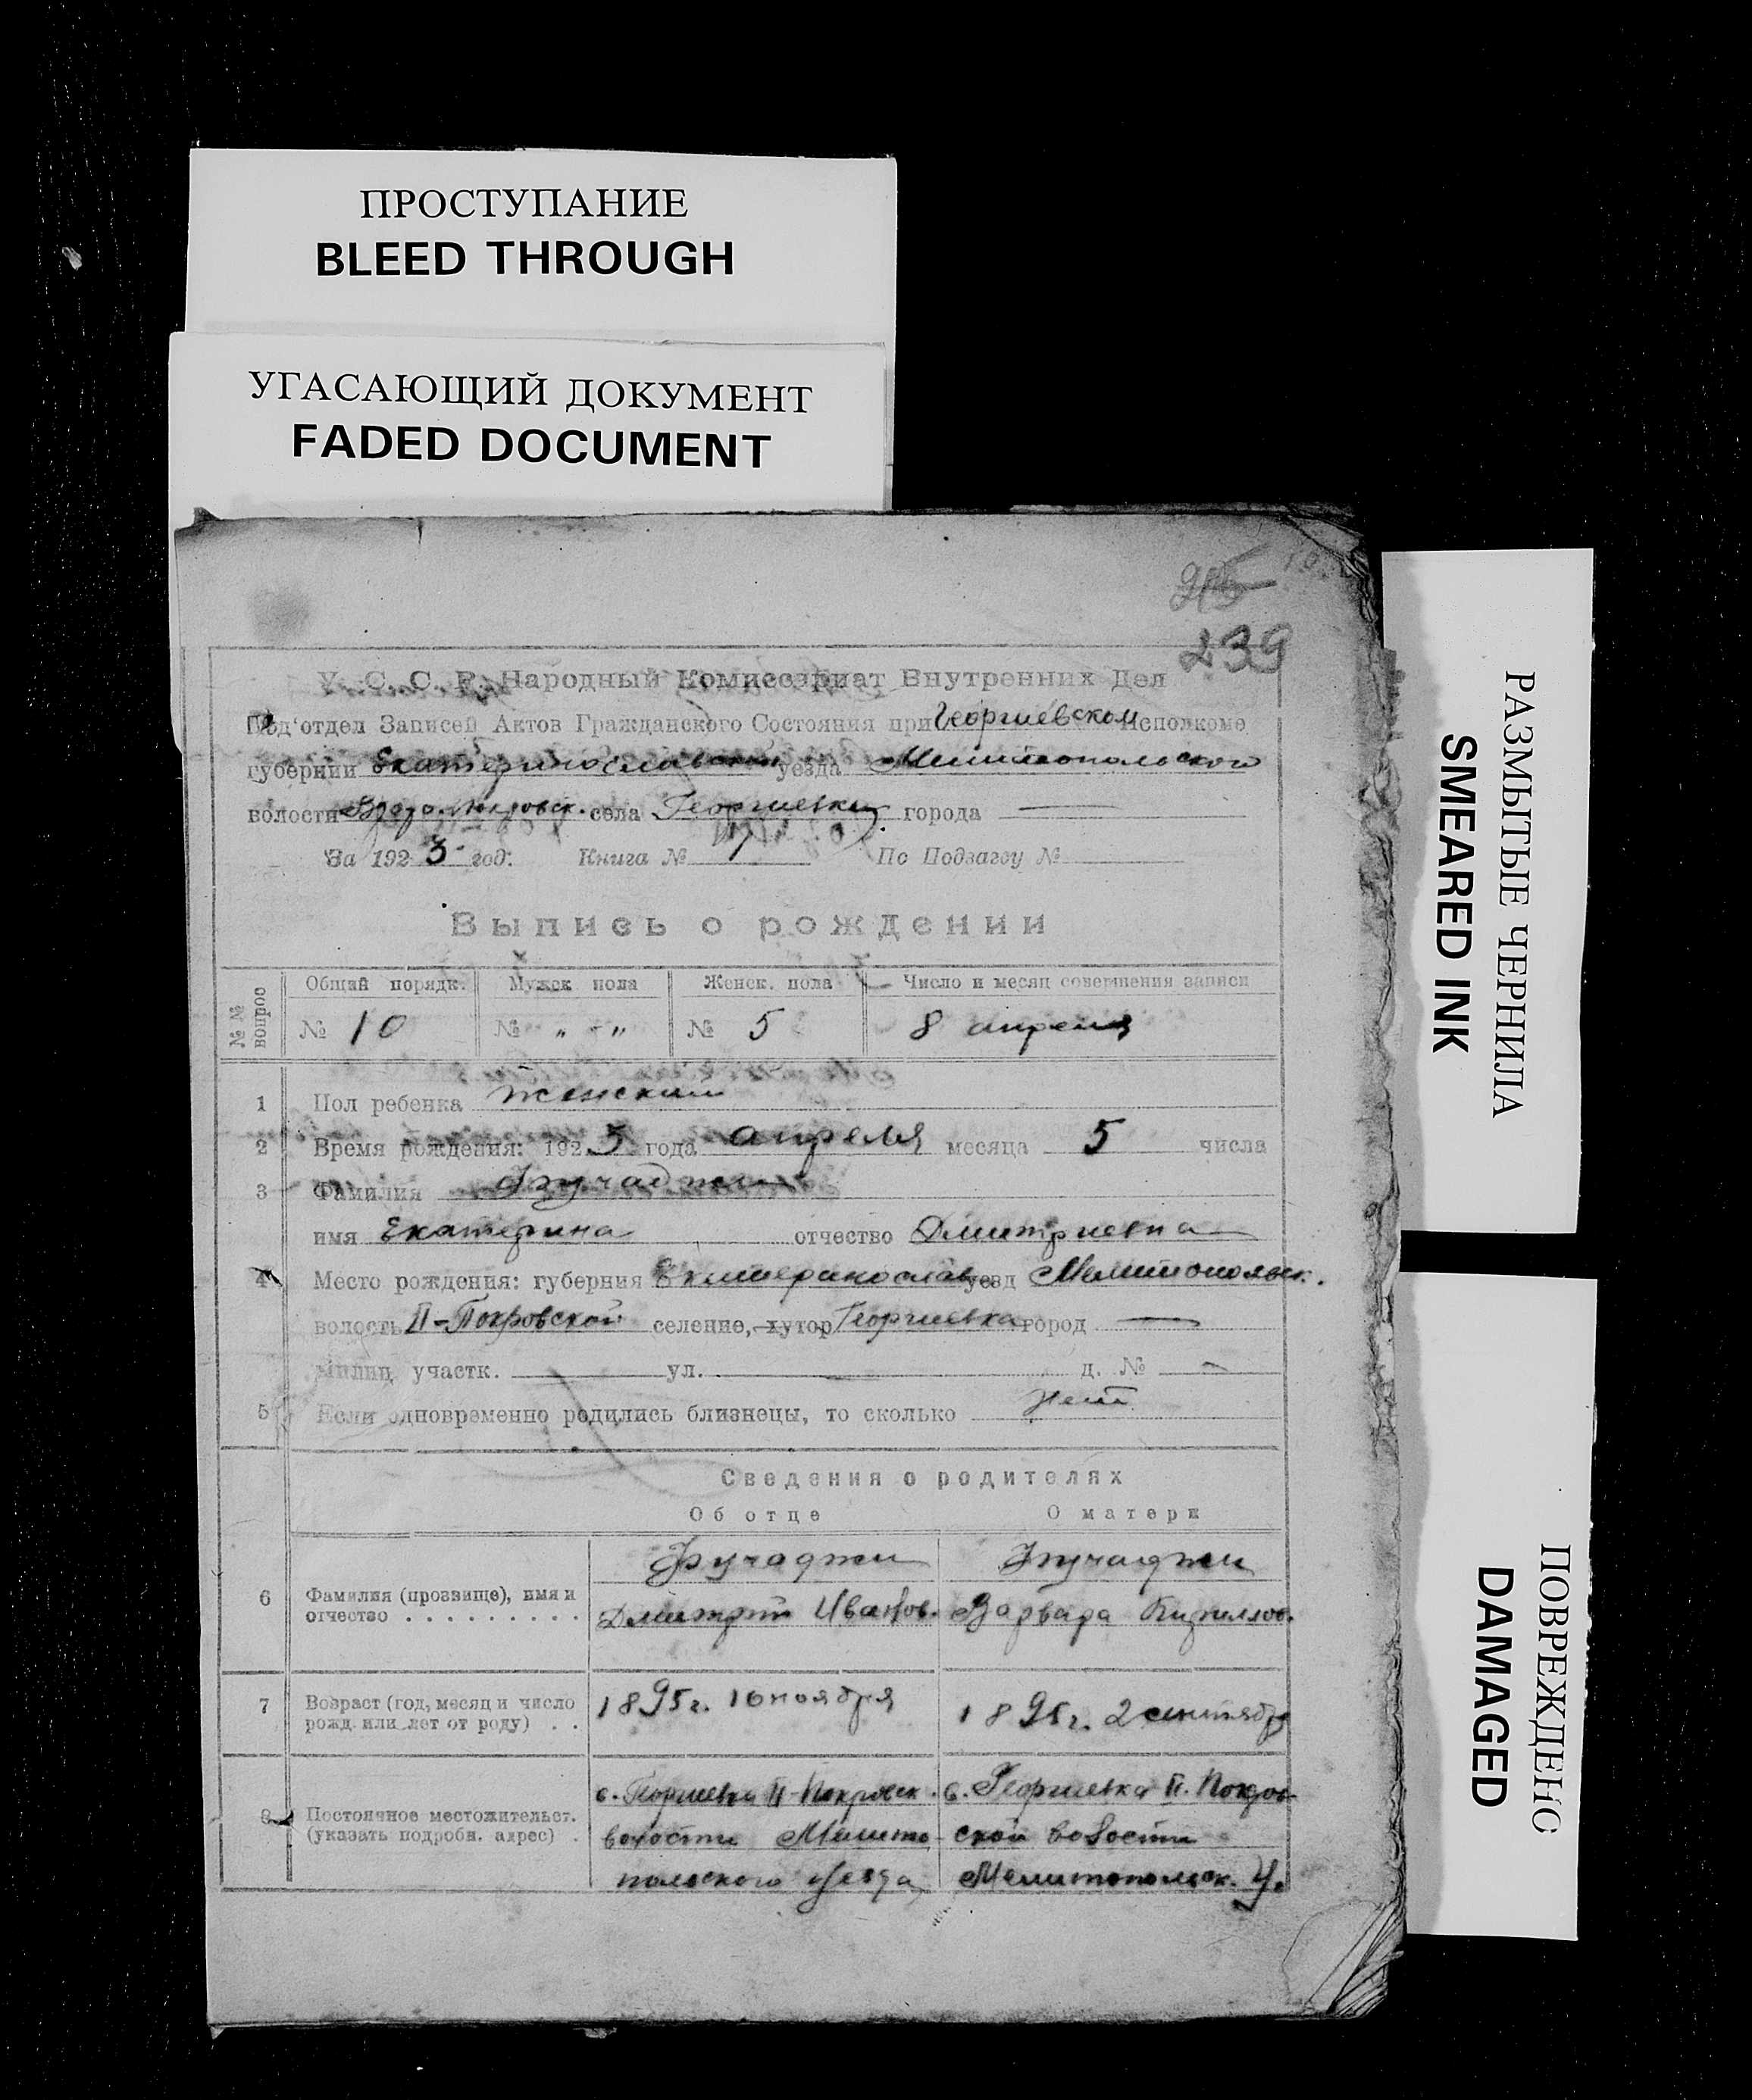 ПРОСТУПАНИЕ
BLEED THROUGH
УГАСАЮЩИЙ ДОКУМЕНТ
FADED DOCUMENT
РАЗМЫТЫЕ ЧЕРНИЛА
SMEARED INK
ПОВРЕЖДЕНО
DAMAGED
239
У. С. С. Р. Народный Комиссариат Внутренних Дел
Под'отдел Записей Актов Гражданского Состояния при Георгиевском Исполкоме
губернии Екатеринославской уезда Мелитопольского
волости села Георгиевки города —
За 1923 год. Книга № 1 По Подзагсу №
Выпись о рождении
№№ вопрос Общий порядк. Мужск пола Женск. пола Число и месяц совершения записи
№ 10 № „ - „ № 5 8 апреля
1 Пол ребенка женский
2 Время рождения: 1923 года апреля месяца 5 числа
3 Фамилия
имя Екатерина отчество Дмитриевна
4 Место рождения: губерния Екатеринослав. уезд Мелитопольск.
волость II-Покровской селение, хутор Георгиевка город —
Милиц участк. ул. д. № —
5 Если одновременно родились близнецы, то сколько нет
Сведения о родителях
Об отце О матери
6 Фамилия (прозвище), имя и отчество . . . . . . . . .
Дмитрий Иванов. Варвара Кириллов.
7 Возраст (год, месяц и число рожд. или лет от роду) . .
1895 г. 16 ноября 1895 г. 2 сентября
8 Постоянное местожительст. (указать подробн. адрес) .
с. Георгиевка II-Покровск. с. Георгиевка II. Покров-
волости Мелито- ской волости
польского уезда Мелитопольск. у.